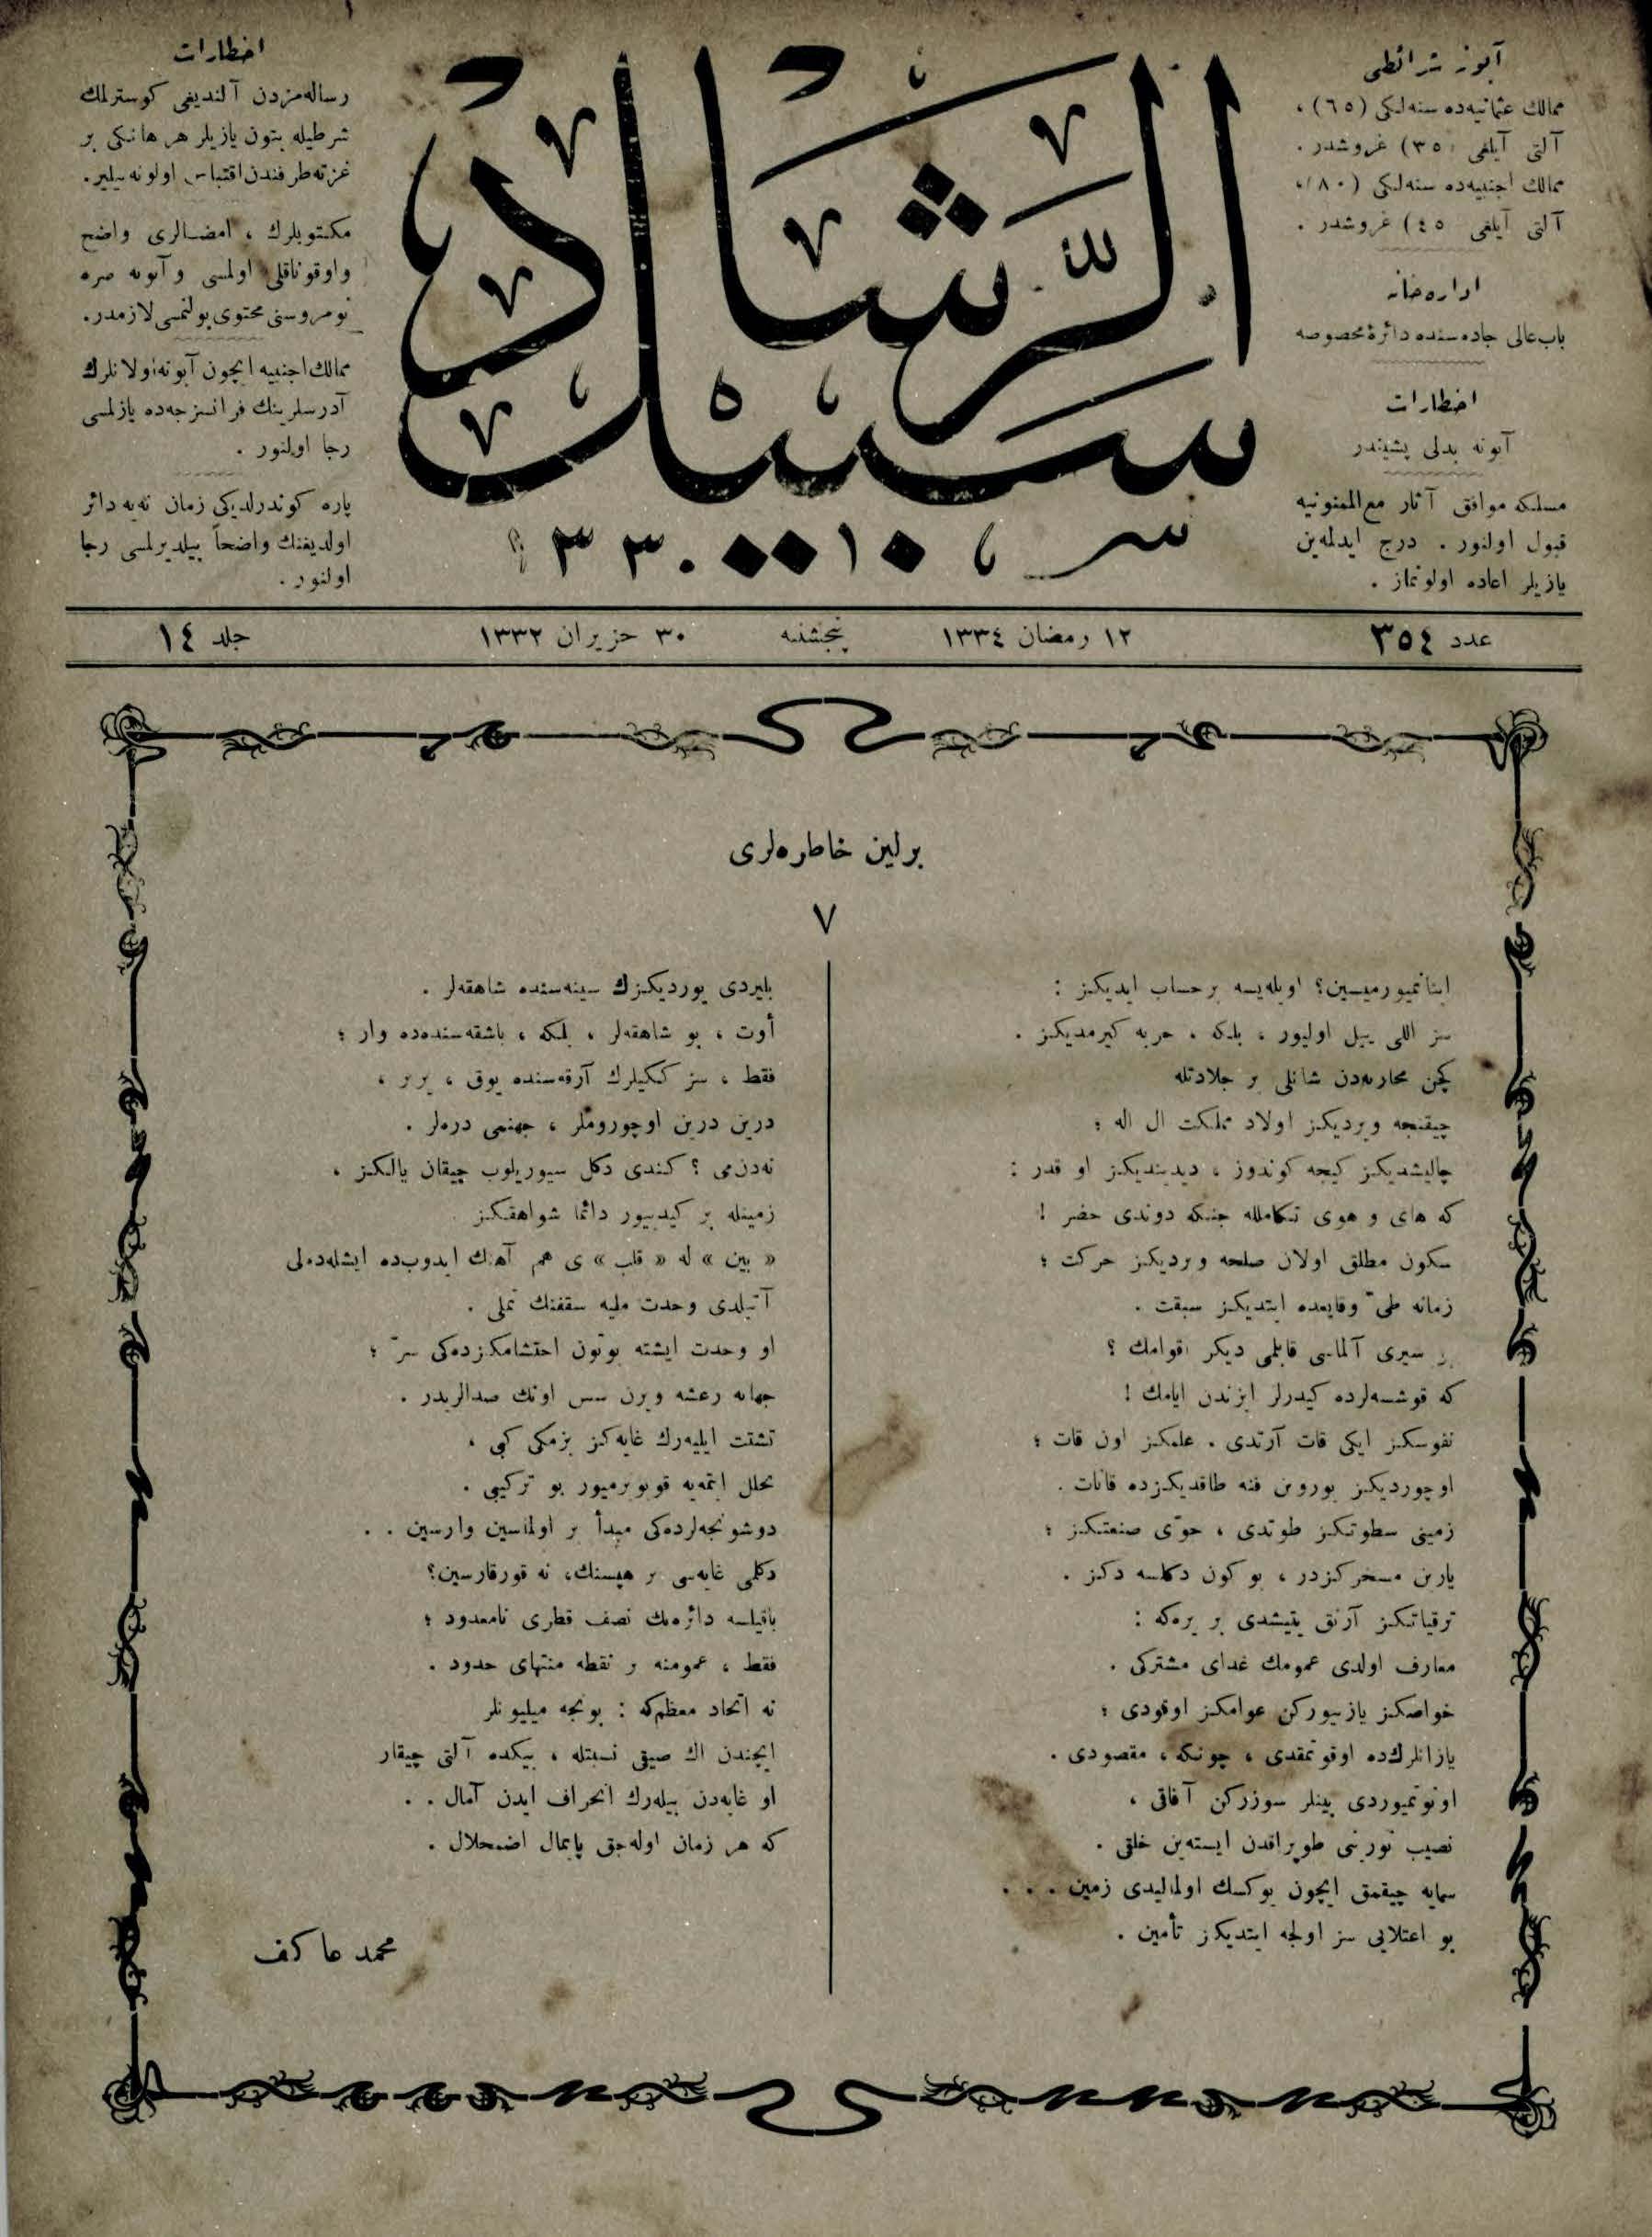 آبونه شرائطی
ممالك عثمانیه‌ده سنه‌لكی (٦٥) ،
آلتی آیلغی (٣٥) غروشدر .
ممالك اجنبیه‌ده سنه‌لكی (٨٠) ،
آلتی آیلغی (٤٥) غروشدر .
اداره‌خانه
باب‌عالی جاده‌سنده دائرۀ مخصوصه
اخطارات
آبونه بدلی پشیندر
مسلكه موافق آثار مع‌الممنونیه
قبول اولنور . درج ایدلمه‌ین
یازیلر اعاده اولونماز .
سبیل الرشاد
اخطارات
رساله‌مزدن آلندیغی كوسترلمك
شرطیله بتون یازیلر هر هانكی بر
غزته طرفندن اقتباس اولونه بیلیر.
مكتوبلرك ، امضالری واضح
واوقوناقلی اولمسی و آبونه صره
نومروسنی محتوی بولنمسی لازمدر.
ممالك اجنبیه ایچون آبونه اولانلرك
آدرسلرینك فرانسزجه‌ده یازلمسی
رجا اولنور .
پاره كوندرلدیكی زمان نه‌یه دائر
اولدیغنك واضحاً بیلدیرلمسی رجا
اولنور .
عدد ٣٥٤
١٢ رمضان ١٣٣٤
پنجشنبه
٣٠ حزیران ١٣٣٢
جلد ١٤
برلین خاطره‌لری
٧
اینانمیورمیسین؟ اویله‌یسه بر حساب ایدیكز :
سز اللی ییل اولیور ، بلكه ، حربه كیرمدیكز .
كچن محاربه‌دن شانلی بر جلادتله
چیقنجه ویردیكز اولاد مملكت ال اله ؛
چالیشدیكز كیجه كوندوز ، دیدیندیكز او قدر :
كه های و هوی تكامله جنكه دوندی حضر !
سكون مطلق اولان صلحه ویردیكز حركت ؛
زمانه طیّ وقایعده ایتدیكز سبقت .
بر سیری آلماسی قابلمی دیكر اقوامك ؟
كه قوشسه‌لرده كیدرلر ایزندن ایامك !
نفوسكز ایكی قات آرتدی . علمكز اون قات ؛
اوچوردیكز یوروین فنه طاقدیكزده قانات .
زمینی سطوتكز طوتدی ، جوّی صنعتكز ؛
یارین مسخركزدر ، بو كون دكلسه دكز .
ترقیاتكز آرتق یتیشدی بر یره‌كه :
معارف اولدی عمومك غدای مشتركی .
خواصكز یازییوركن عوامكز اوقودی ؛
یازانلرك‌ده اوقوتمقدی ، چونكه ، مقصودی .
اونوتمیوردی بیینلر سوزركن آفاقی ،
نصیب نورینی طوپراقدن ایسته‌ین خلقی .
سمایه چیقمق ایچون یوكسك اولمالیدی زمین . . .
بو اعتلایی سز اولجه ایتدیكز تأمین .
بلیردی یوردیكزك سینه‌سنده شاهقه‌لر .
أوت ، بو شاهقه‌لر ، بلكه ، باشقه‌سنده‌ده وار ؛
فقط ، سز ككیلرك آرقه‌سنده یوق ، یریر ،
درین درین اوچوروملر ، جهنمی دره‌لر .
نه‌دن‌می ؟ كندی دكل سیوریلوب چیقان یالكز ،
زمینله بر كیدییور دائما شواهقكز
« بیین » له « قلب » ی هم آهنك ایدوب‌ده ایشله‌ده‌لی
آتیلدی وحدت ملیه سقفنك تملی .
او وحدت ایشته بوتون احتشامكزده‌كی سرّ ؛
جهانه رعشه ویرن سس اونك صدالریدر .
تشتت ایلیه‌رك غایه‌كز بزمكی كبی ،
تحلل ایتمه‌یه قویویرمیور بو تركیبی .
دوشونجه‌لرده‌كی مبدأ بر اولماسین وارسین . .
دكلمی غایه‌سی بر هپسنك، نه قورقارسین؟
باقیلسه دائره‌نك نصف قطری نامعدود ؛
فقط ، عمومنه بر نقطه منتهای حدود .
نه اتحاد معظم‌كه : بونجه میلیونلر
ایچندن اك صیقی نسبتله ، بیكده آلتی چیقار
او غایه‌دن بیله‌رك انحراف ایدن آمال . .
كه هر زمان اوله‌جق پایمال اضمحلال .
محمد عاكف